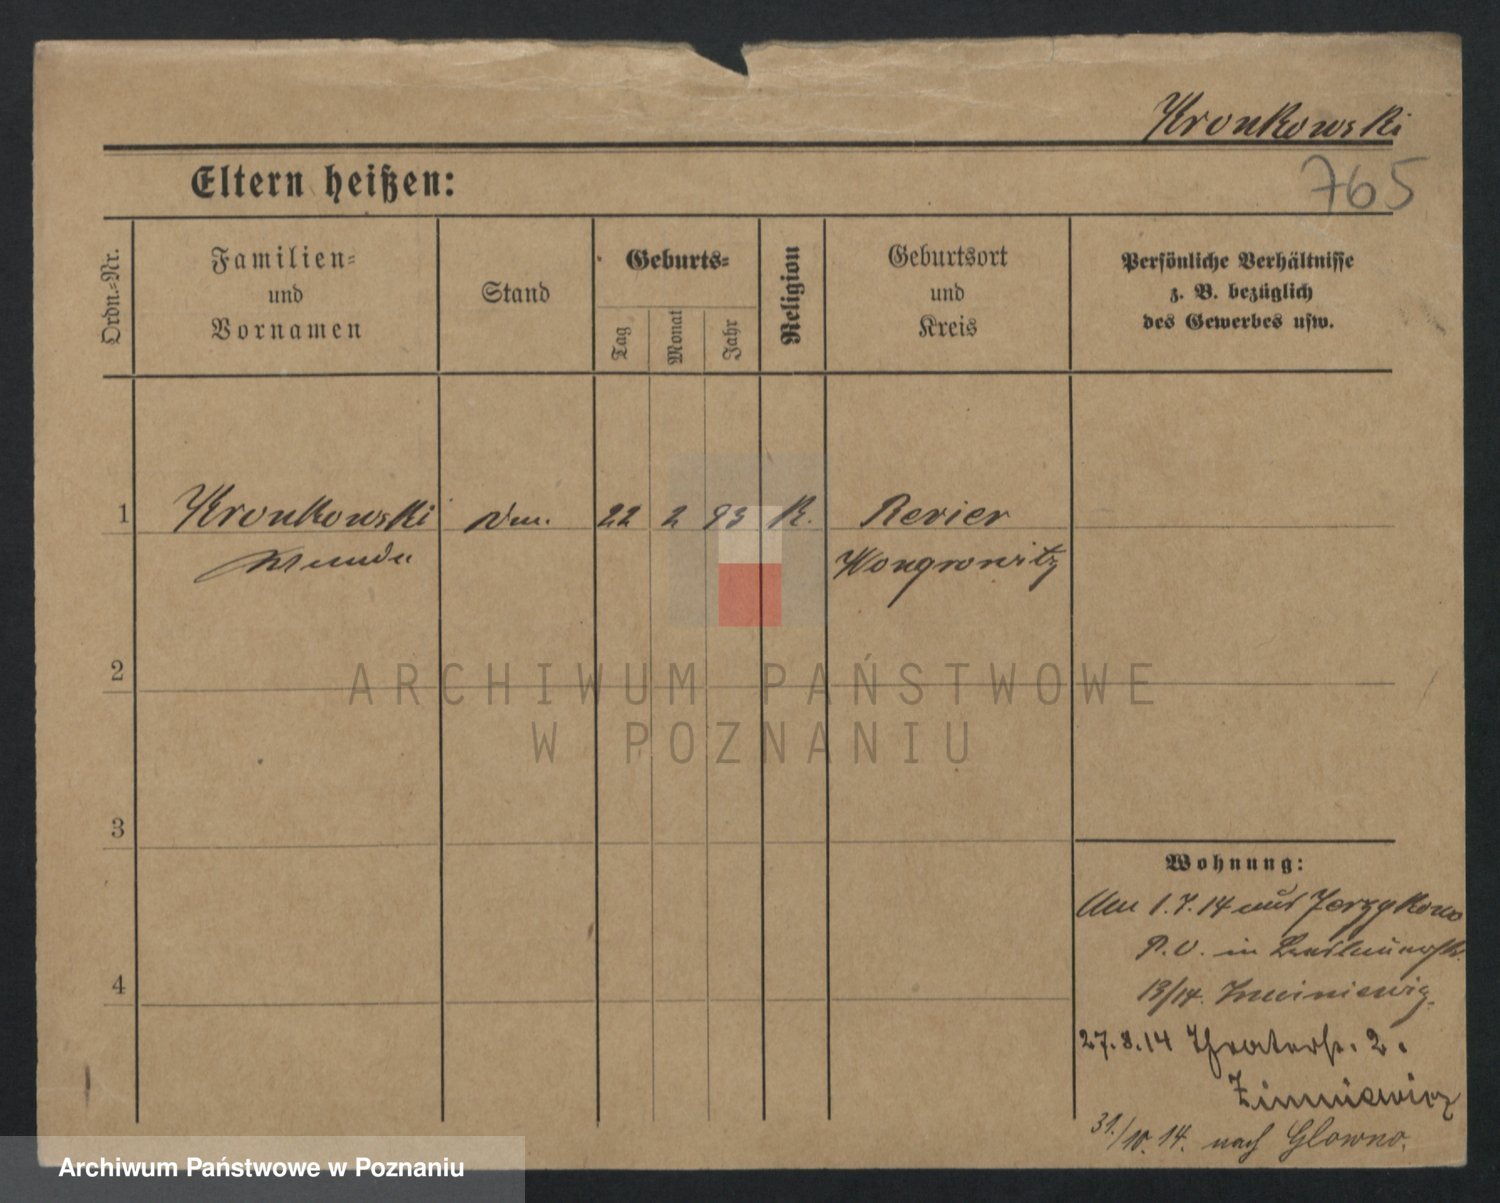 Kronkowski
765
Eltern heißen:
Ordn.-Nr.
Familien-
und
Vornamen
Stand
Geburts-
Tag
Monat
Jahr
Religion
Geburtsort
und
Kreis
Persönliche Verhältnisse
z. B. bezüglich
des Gewerbes usw.
1 Kronkowski 22 2 93 K. Revier
Wongrowitz
2
ARCHIWUM PAŃSTWOWE
W POZNANIU
3
Wohnung:
1.7.14 aus Jerzykowo
P. O. in
4
13/14.
27.8.14 Theaterstr. 2.
Zimniewicz
31./10. 14. nach Glowno.
Archiwum Państwowe w Poznaniu